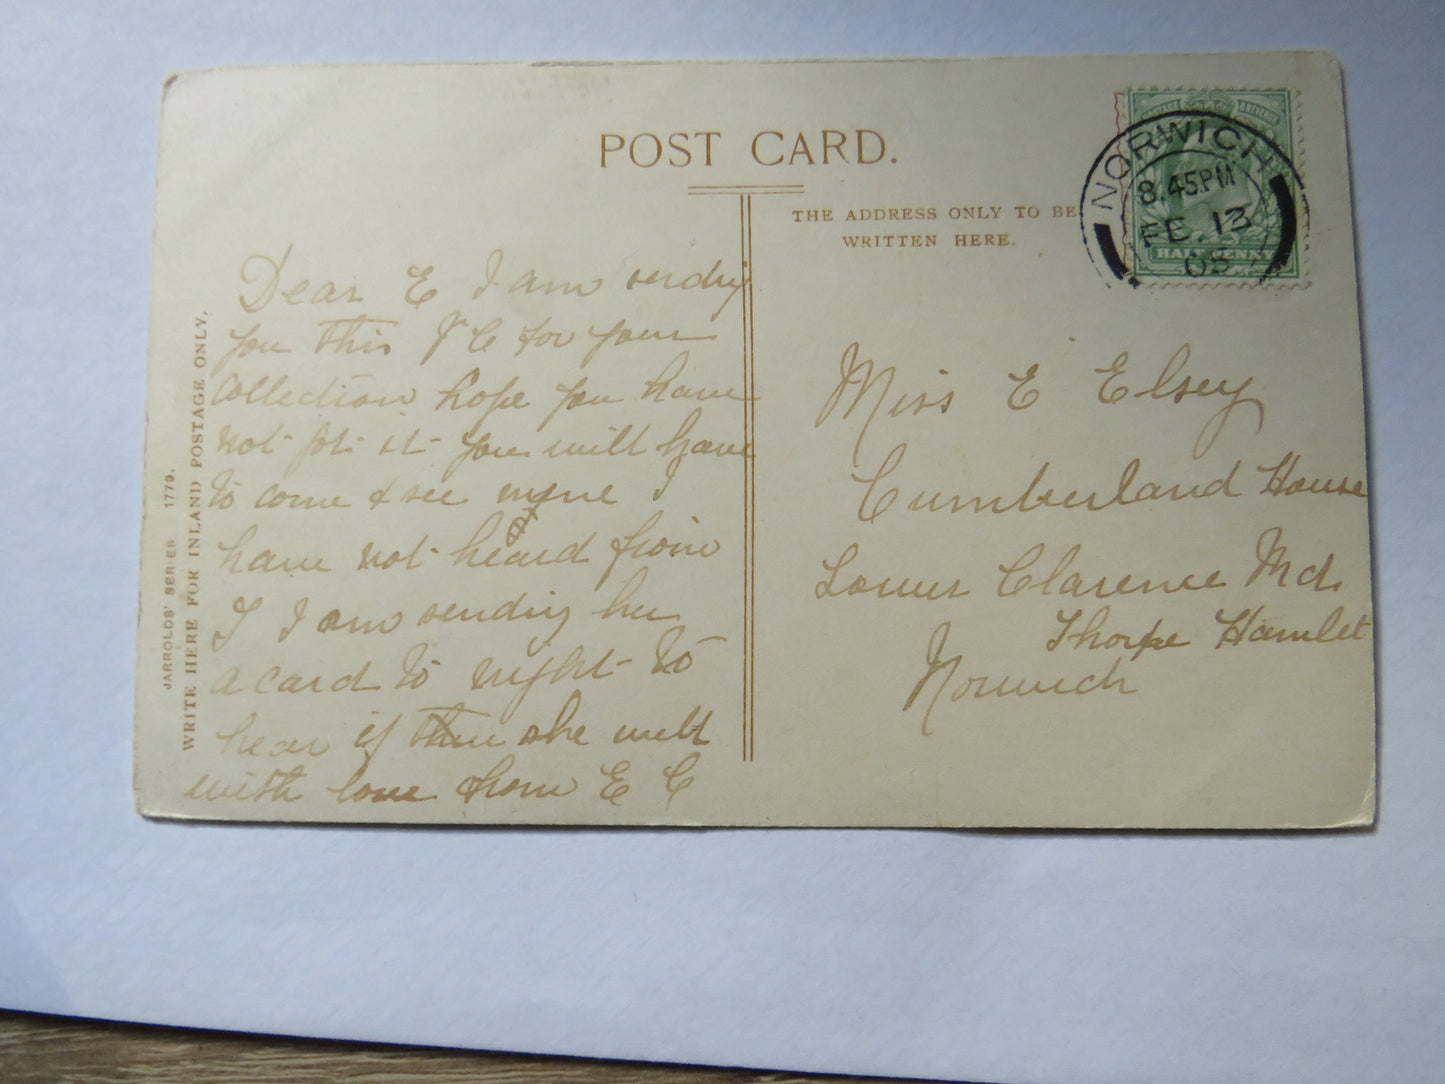 POST CARD.
THE ADDRESS ONLY TO BE
WRITTEN HERE.
POSTAGE & REVENUE
HALF PENNY
NORWICH
8.45PM
FE. 13
08
JARROLDS' SERIES 1779.
WRITE HERE FOR INLAND POSTAGE ONLY.
Dear E I am sending
you this P C for your
collection hope you have
not got it you will have
to come & see mine I
have not heard from
J I am sending her
a card to night to
hear if she well
with love from E C
Miss E Elsey
Cumberland House
Lower Clarence Rd.
Thorpe Hamlet
Norwich